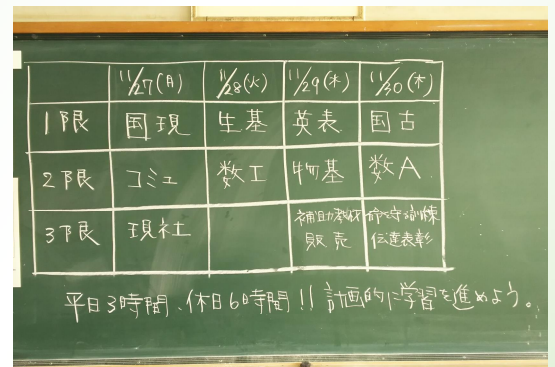 11/27(月) 11/28(火) 11/29(水) 11/30(木)
1限 国現 生基 英表 国古
2限 コミュ 数I 物基 数A
3限 現社 補助教材 命を守る訓練
販売 伝達表彰
平日3時間、休日6時間!!計画的に学習を進めよう。